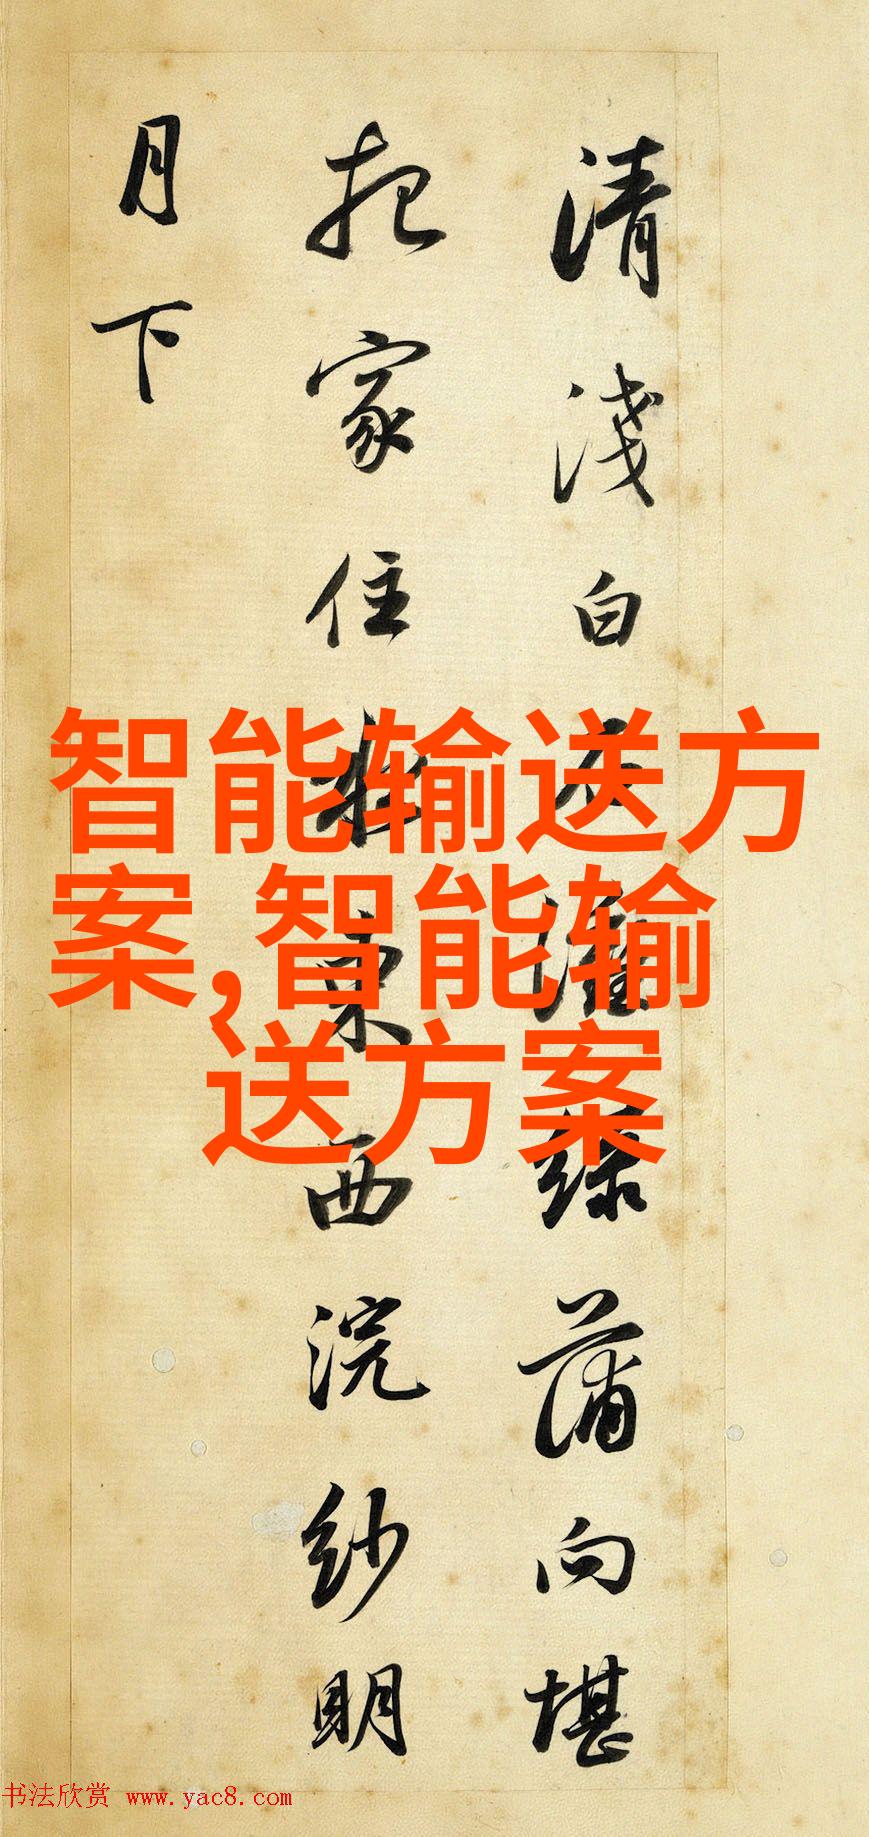 清淺白石灘綠蒲向堪
把家住水東西浣紗明
月下
智能输送方
案,智能输
送方案
书法欣赏 www.yac8.com